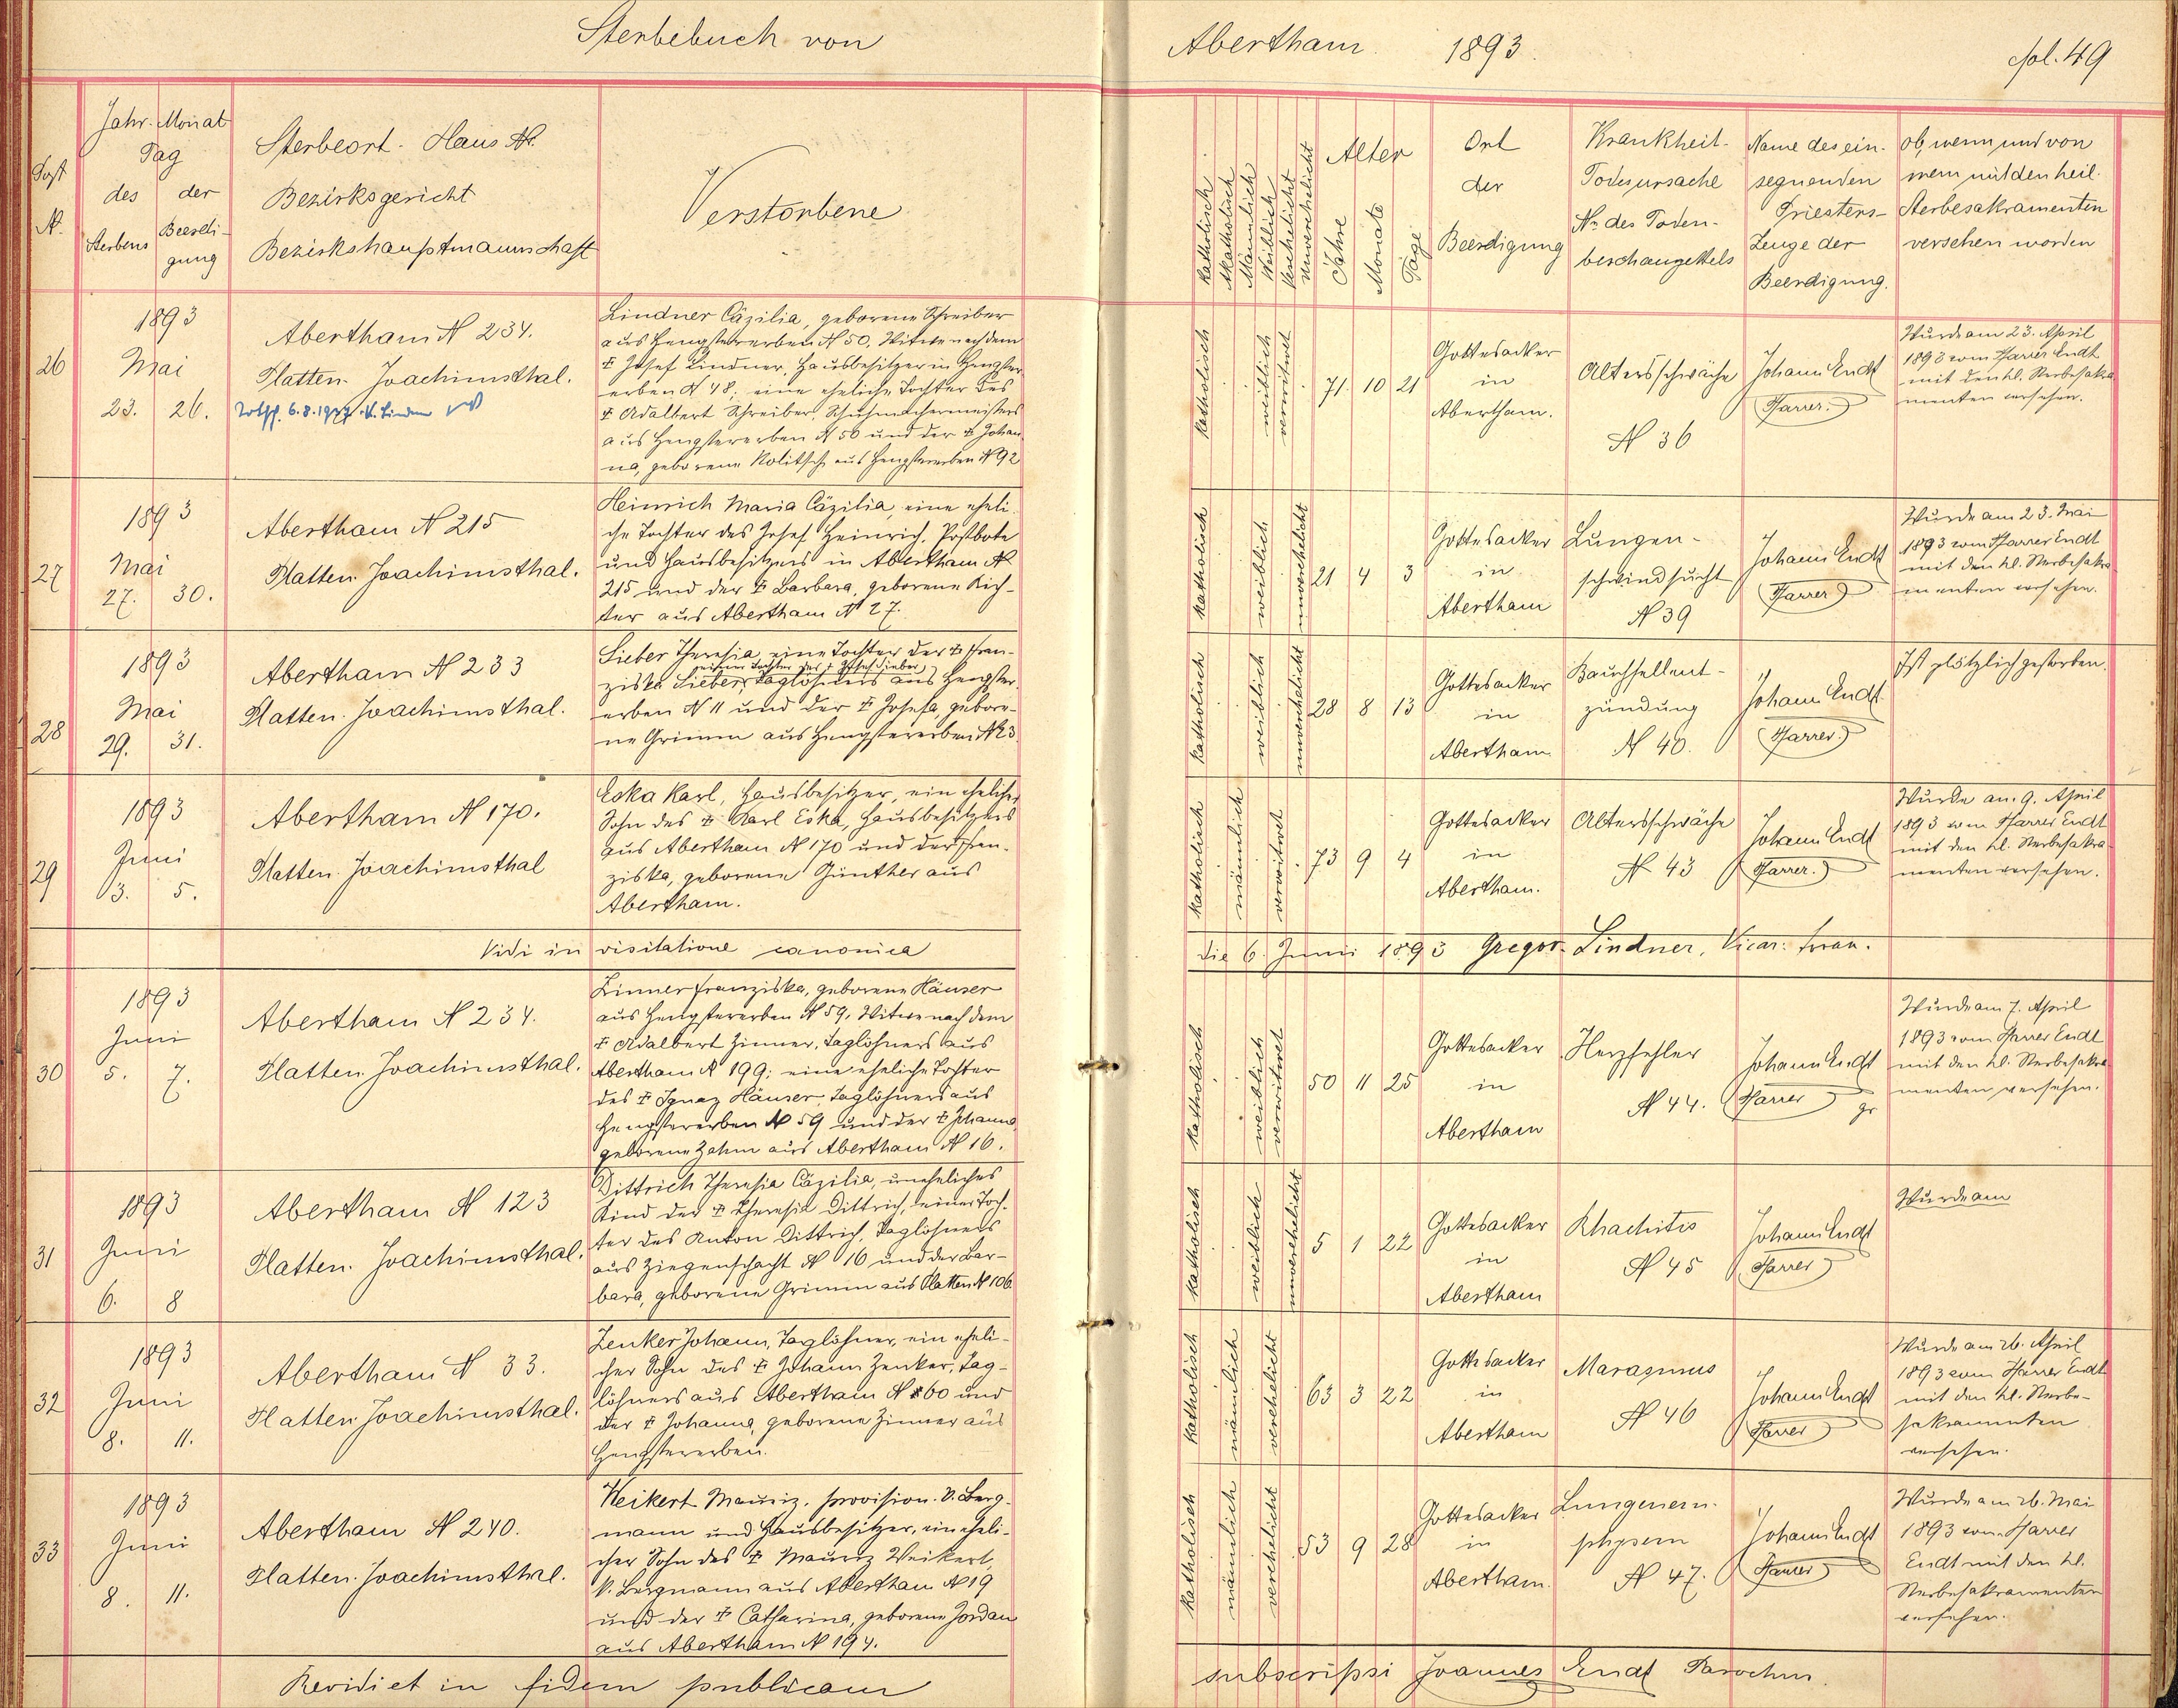 Sterbebuch von
Abertham 1893.
fol. 49
Post
N.
Jahr. Monat
Tag
des der
Sterbens Beerdi-
gung
Sterbeort. Haus N.
Bezirksgericht
Bezirkshauptmannschaft
Verstorbene
katholisch
Akatholisch
Männlich
Weiblich
Verehelicht
Unverehelicht
Alter
Jahre
Monate
Tage
Ort
der
Beerdigung
Krankheit-
Todesursache
No. des Toden-
beschauzettels
Name des ein-
segnenden
Priesters-
Zeuge der
Beerdigung.
ob, wenn und von
wem mit den heil.
Sterbesakramenten
versehen worden
26
1893
Mai
23. 26.
Abertham N 234.
Platten. Joachimsthal.
6.8.1937
Lindner Cäzilia, geborene Schreiber
aus Hengstererben N 50. Witwe nach dem
† Josef Lindner, Hausbesitzer in Hengster-
erben N 48; eine eheliche Tochter des
† Adalbert Schreiber, Schuhmachermeisters
aus Hengstererben N 50 und der † Johan-
na, geborene Kolitsch aus Hengstererben N 92
katholisch
weiblich
verwitwet
71. 10 21
Gottesacker
in
Abertham.
Altersschwäche
N 36
Johann Endt
Pfarrer.
Wurde am 23. April
1893 vom Pfarrer Endt
mit den hl. Sterbesakra-
menten versehen.
27
1893
Mai
27. 30.
Abertham N 215
Platten Joachimsthal.
Heinrich Maria Cäzilia, eine eheli-
che Tochter des Josef Heinrich, Postbote
und Hausbesitzers in Abertham N
215 und der † Barbara, geborene Rich-
ter aus Abertham N 27.
katholisch
weiblich
unverehelicht
21 4 3
Gottesacker
in
Abertham
Lungen-
schwindsucht
N 39
Johann Endt
Pfarrer
Wurde am 23. Mai
1893 vom Pfarrer Endt
mit den hl. Sterbesakra-
menten versehen.
28
1893
Mai
29. 31.
Abertham N 233
Platten. Joachimsthal.
Sieber Theresia, eine Tochter der † Fran-
einer Tochter des † Josef Sieber
ziska Sieber, Taglöhners aus Hengster-
erben N 11 und der † Josefa, gebore-
ne Grimm aus Hengstererben N 23.
katholisch
weiblich
unverehelicht
28 8 13
Gottesacker
in
Abertham
Bauchfellent-
zündung
N 40.
Johann Endt
Pfarrer.
Ist plötzlich gestorben.
29
1893
Juni
3. 5.
Abertham N 170.
Platten. Joachimsthal
Eska Karl, Hausbesitzer, ein ehelicher
Sohn des † Karl Eska, Hausbesitzers
aus Abertham N 170 und der Fran-
ziska, geborene Günther aus
Abertham.
katholisch
männlich
verwitwet
73 9 4
Gottesacker
in
Abertham.
Altersschwäche
N 43
Johann Endt
Pfarrer.
Wurde am 9. April
1893 vom Pfarrer Endt
mit den hl. Sterbesakra-
menten versehen.
Vidi in visitatione canonica
die 6. Junii 1893 Gregor. Lindner, Vicar: foran.
30
1893
Juni
5. 7.
Abertham N 234.
Platten. Joachimsthal.
Zinner Franziska, geborene Häuser
aus Hengstererben N 59, Witwe nach dem
† Adalbert Zinner, Taglöhners aus
Abertham N 199; eine eheliche Tochter
des † Ignaz Häuser, Taglöhners aus
Hengstererben N 59 und der † Johanna,
geborene Zahm aus Abertham N 16.
katholisch
weiblich
verwitwet
50 11 25
Gottesacker
in
Abertham
Herzfehler
N 44.
Johann Endt
Pfarrer
gr
Wurde am 7. April
1893 vom Pfarrer Endt
mit den hl. Sterbesakra-
menten versehen.
31
1893
Juni
6. 8
Abertham N 123
Platten. Joachimsthal.
Dittrich Theresia Cäzilia, uneheliches
Kind der † Theresia Dittrich, einer Toch-
ter des Anton Dittrich, Taglöhners
aus Ziegenschacht N 16 und der Bar-
bara, geborene Grimm aus Platten N 106.
katholisch
weiblich
unverehelicht
5 1 22
Gottesacker
in
Abertham
Rhachitis
N 45
Johann Endt
Pfarrer
Wurde am
32
1893
Juni
8. 11.
Abertham N 33.
Platten Joachimsthal.
Zenker Johann, Taglöhner, ein eheli-
cher Sohn des † Johann Zenker, Tag-
löhners aus Abertham N 60 und
der † Johanna, geborene Zinner aus
Hengstererben.
katholisch
männlich
verehelicht
63 3 22
Gottesacker
in
Abertham
Marasmus
N 46
Johann Endt
Pfarrer
Wurde am 26. April
1893 vom Pfarrer Endt
mit den hl. Sterbe-
sakramenten
versehen.
33
1893
Juni
8. 11.
Abertham N 240.
Platten. Joachimsthal.
Weikert Mauriz, provision. k. Berg-
mann und Hausbesitzer, ein eheli-
cher Sohn des † Mauriz Weikert,
k. Bergmann aus Abertham N 19
und der † Catharina, geborene Jordan
aus Abertham N 194.
katholisch
männlich
verehelicht
53 9 28
Gottesacker
in
Abertham.
Lungenem-
physem
N 47.
Johann Endt
Pfarrer
Wurde am 26. Mai
1893 vom Pfarrer
Endt mit den hl.
Sterbesakramenten
versehen.
Revidi et in fidem publicam
subscripsi Joannes Endt Parochus.